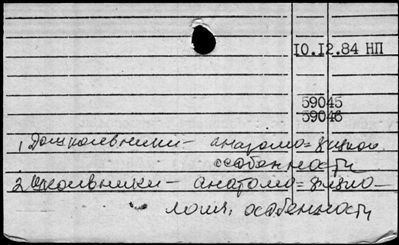 10.12.84 НП
59045
59046
1, Дошкольники — анатомо=физиол
особенности
2 Школьники — анатомо=физио-
лоич, особенности